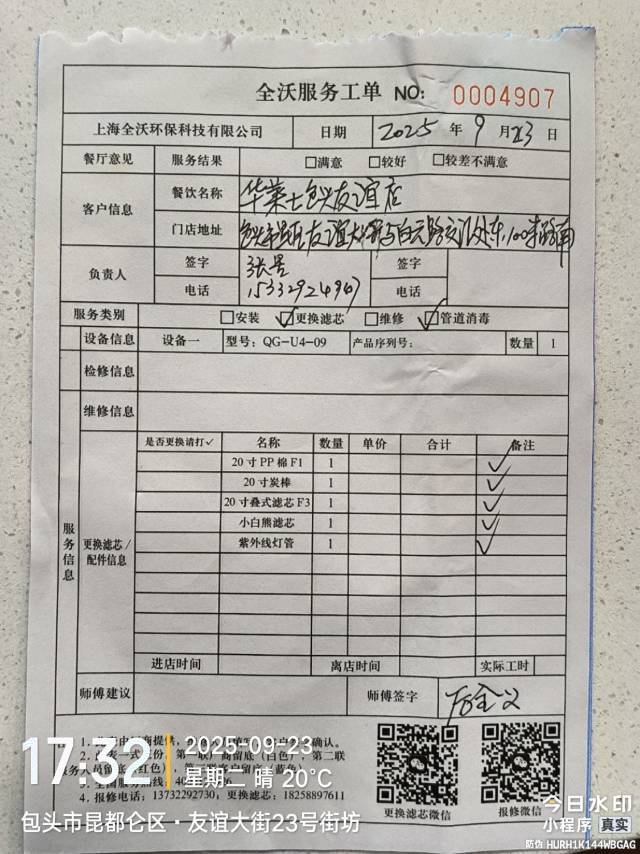 全沃服务工单 NO: 0004907
上海全沃环保科技有限公司 日期 2025 年 9 月 23 日
餐厅意见 服务结果 □满意 □较好 □较差不满意
客户信息 餐饮名称 华莱士包头友谊店
门店地址 友谊大街与白云路交汇处东100米路南
负责人 签字 张 签字
电话 15332924967 电话
服务类别 □安装 ☑更换滤芯 □维修 ☑管道消毒
设备信息 设备一 型号: QG-U4-09 产品序列号: 数量 1
检修信息
维修信息
服务信息 更换滤芯/配件信息
是否更换请打✓ 名称 数量 单价 合计 备注
20寸PP棉F1 1 ✓
20寸炭棒 1 ✓
20寸叠式滤芯F3 1 ✓
小白熊滤芯 1 ✓
紫外线灯管 1 ✓
进店时间 离店时间 实际工时
师傅建议 师傅签字
确认。
第一联 留底(白色),第二联
4、报修电话: 13732292730,更换滤芯: 18258897611
更换滤芯微信 报修微信
17:32 2025-09-23
星期二 晴 20°C
包头市昆都仑区·友谊大街23号街坊
今日水印
小程序 真实
防伪 HURH1K144WBGAG